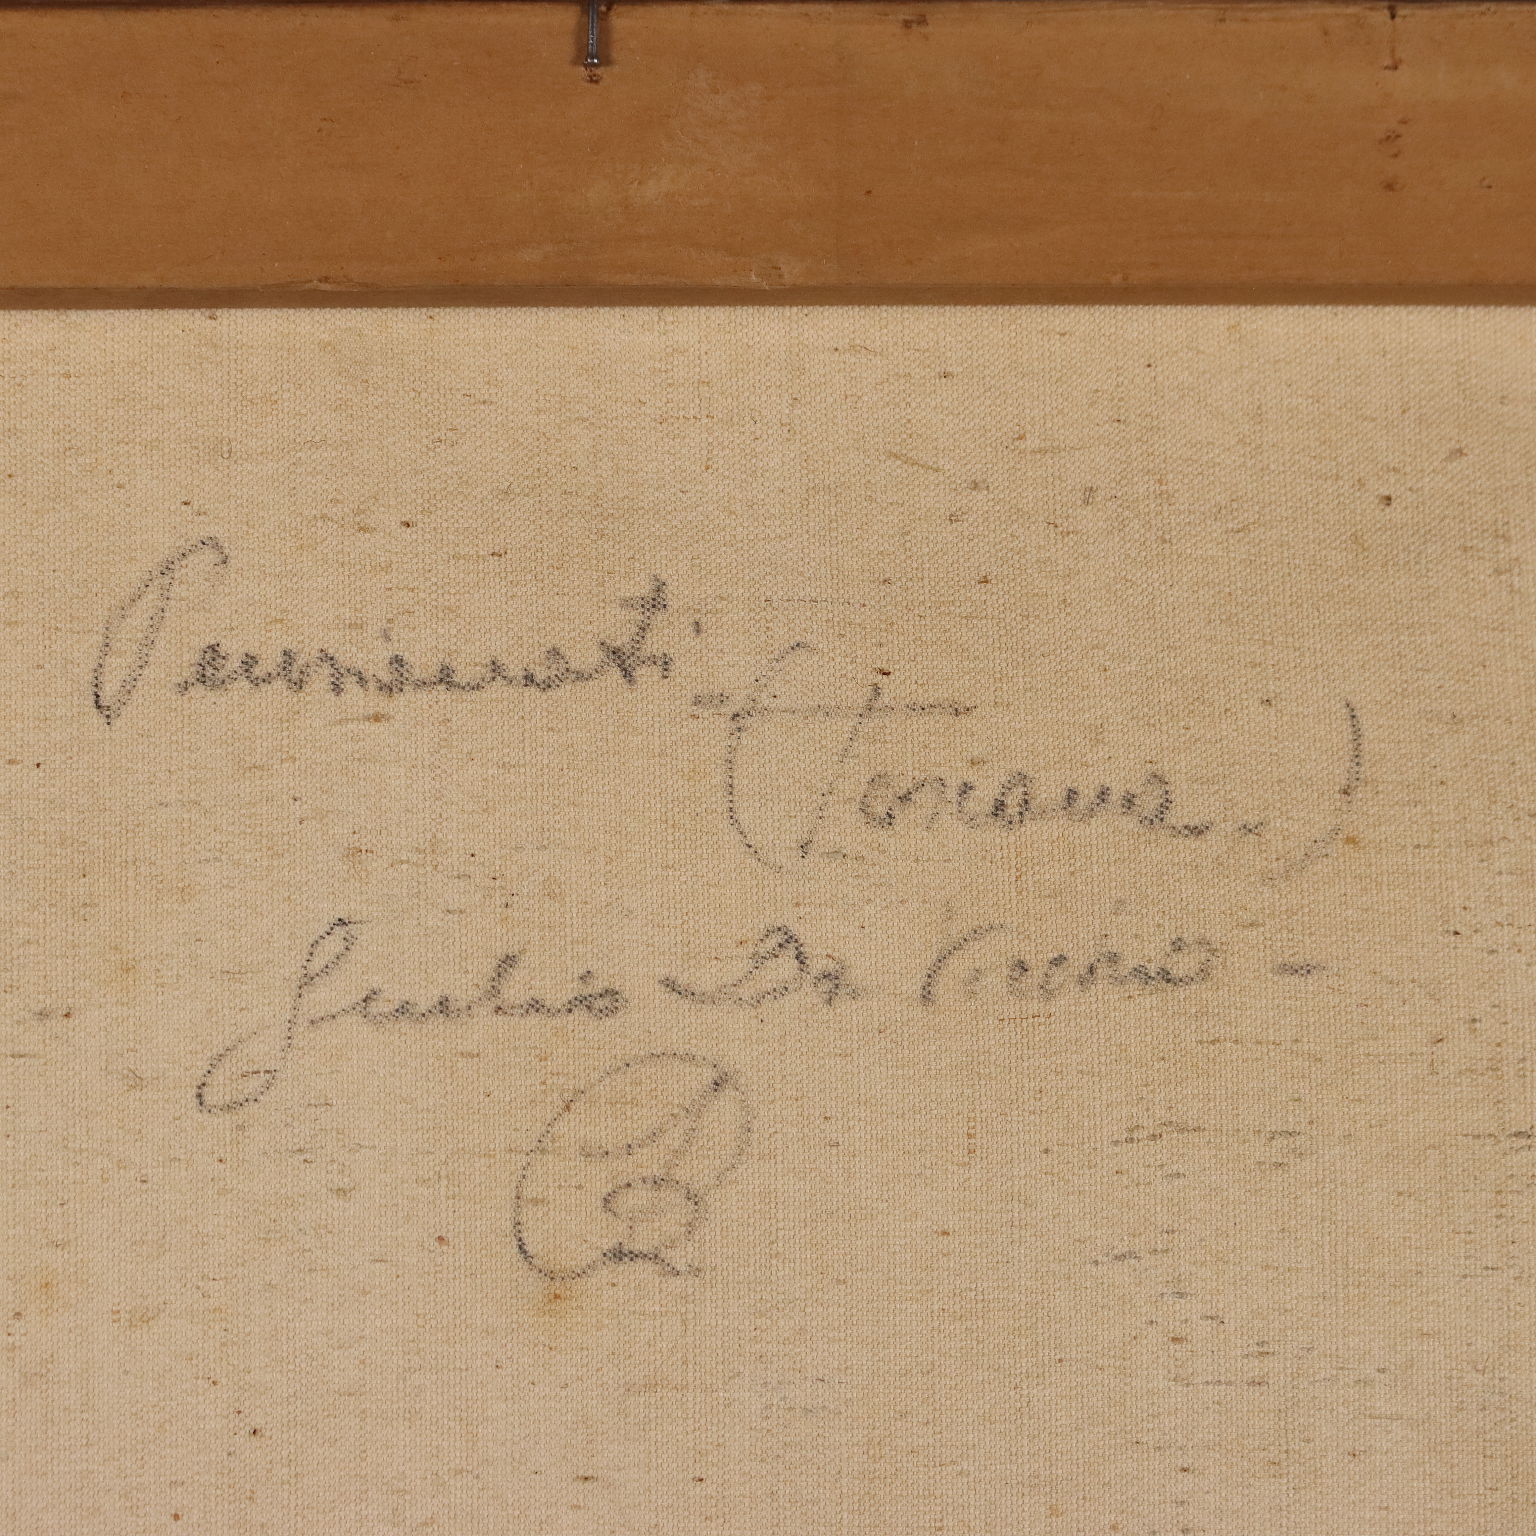 Pensionati
(Toscana.)
Giulio Da Vicchio -